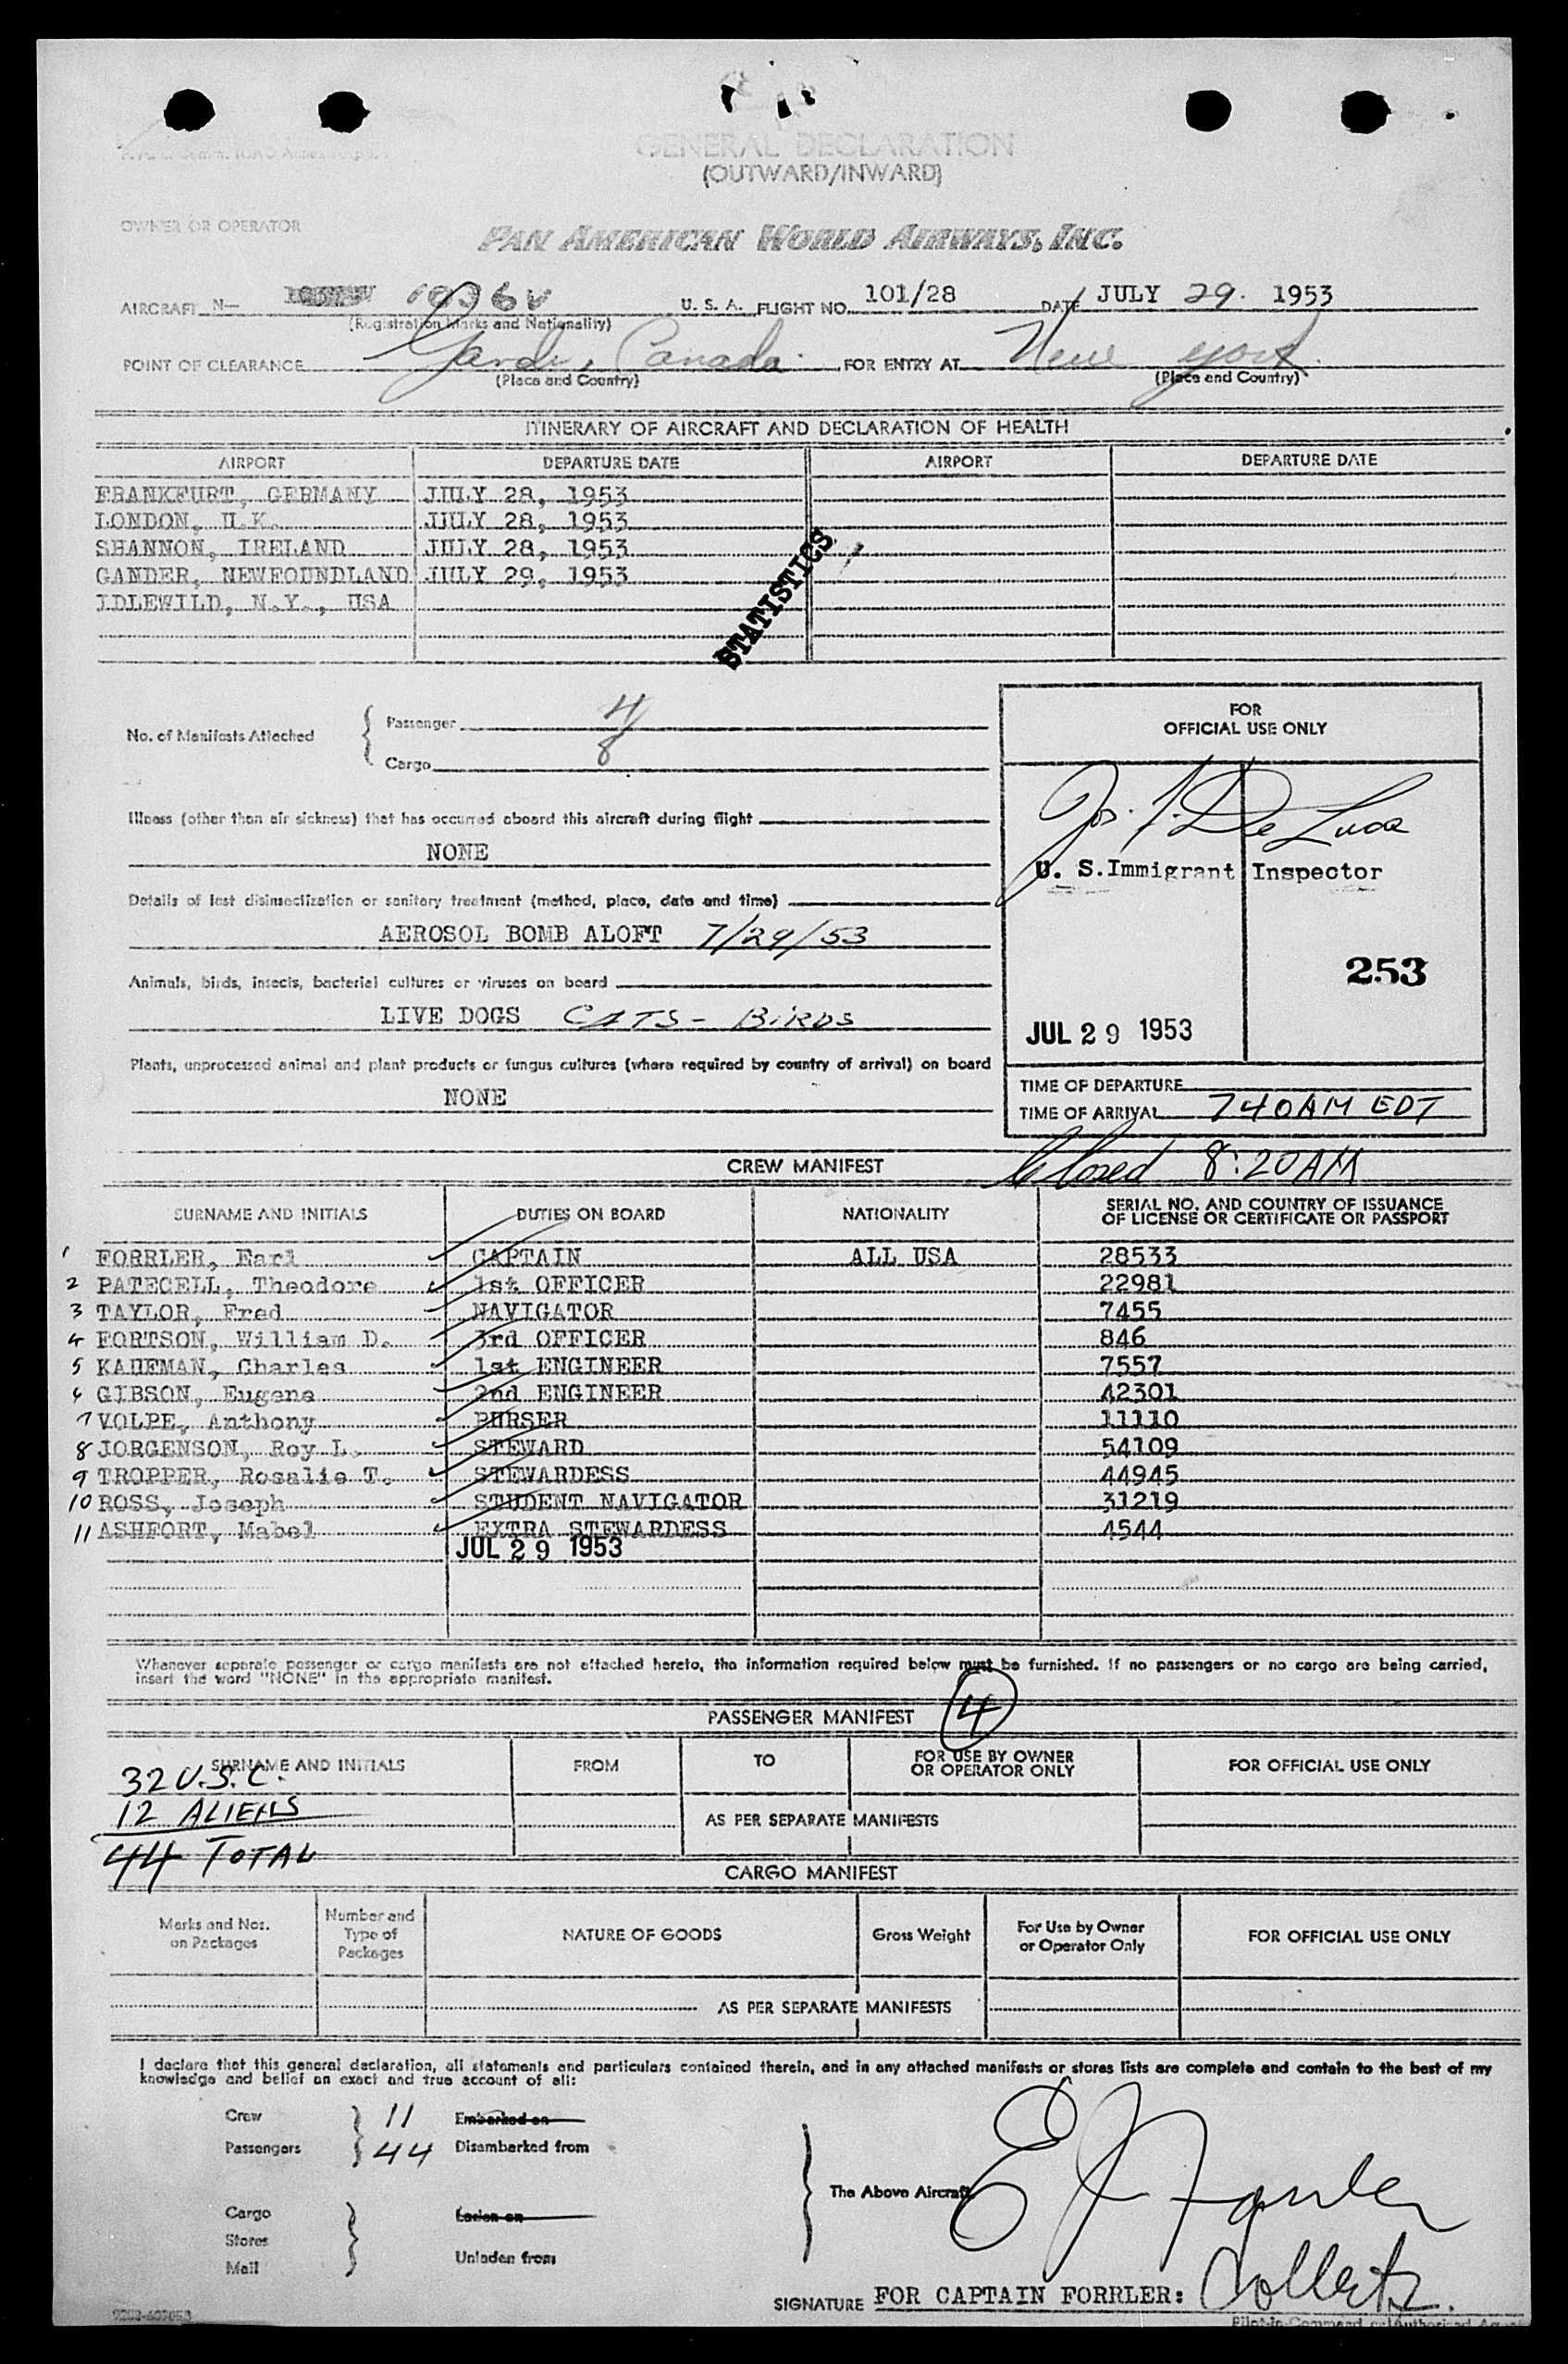 GENERAL DECLARATION
(OUTWARD/INWARD)
OWNER OR OPERATOR
PAN AMERICAN WORLD AIRWAYS, INC.
AIRCRAFT N— 1036V U. S. A. FLIGHT NO. 101/28 DATE JULY 29. 1953
(Registration Marks and Nationality)
POINT OF CLEARANCE Gander, Canada. FOR ENTRY AT New York.
(Place and Country) (Place and Country)
ITINERARY OF AIRCRAFT AND DECLARATION OF HEALTH
AIRPORT DEPARTURE DATE AIRPORT DEPARTURE DATE
FRANKFURT, GERMANY JULY 28, 1953
LONDON, U.K. JULY 28, 1953
SHANNON, IRELAND JULY 28, 1953
GANDER, NEWFOUNDLAND JULY 29, 1953
IDLEWILD, N.Y., USA
STATISTICS
No. of Manifests Attached
Passenger 4
Cargo 8
FOR
OFFICIAL USE ONLY
Jos. F. De Luca
U. S. Immigrant Inspector
253
JUL 29 1953
TIME OF DEPARTURE
TIME OF ARRIVAL 740AM EDT
Closed 8:20AM
Illness (other than air sickness) that has occurred aboard this aircraft during flight
NONE
Details of last disinsectization or sanitary treatment (method, place, date and time)
AEROSOL BOMB ALOFT 7/29/53
Animals, birds, insects, bacterial cultures or viruses on board
LIVE DOGS CATS - BIRDS
Plants, unprocessed animal and plant products or fungus cultures (where required by country of arrival) on board
NONE
CREW MANIFEST
SURNAME AND INITIALS DUTIES ON BOARD NATIONALITY SERIAL NO. AND COUNTRY OF ISSUANCE
OF LICENSE OR CERTIFICATE OR PASSPORT
1 FORRLER, Earl CAPTAIN ALL USA 28533
2 PATECELL, Theodore 1st OFFICER 22981
3 TAYLOR, Fred NAVIGATOR 7455
4 FORTSON, William D. 3rd OFFICER 846
5 KAUFMAN, Charles 1st ENGINEER 7557
6 GIBSON, Eugene 2nd ENGINEER 42301
7 VOLPE, Anthony PURSER 11110
8 JORGENSON, Roy L. STEWARD 54109
9 TROPPER, Rosalie T. STEWARDESS 44945
10 ROSS, Joseph STUDENT NAVIGATOR 31219
11 ASHFORT, Mabel EXTRA STEWARDESS 4544
JUL 29 1953
Whenever separate passenger or cargo manifests are not attached hereto, the information required below must be furnished. If no passengers or no cargo are being carried,
insert the word "NONE" in the appropriate manifest.
PASSENGER MANIFEST 4
SURNAME AND INITIALS FROM TO FOR USE BY OWNER
OR OPERATOR ONLY FOR OFFICIAL USE ONLY
32 U.S.C.
12 ALIENS
44 TOTAL
AS PER SEPARATE MANIFESTS
CARGO MANIFEST
Marks and Nos.
on Packages
Number and
Type of
Packages
NATURE OF GOODS
Gross Weight
For Use by Owner
or Operator Only
FOR OFFICIAL USE ONLY
AS PER SEPARATE MANIFESTS
I declare that this general declaration, all statements and particulars contained therein, and in any attached manifests or stores lists are complete and contain to the best of my
knowledge and belief an exact and true account of all:
Crew 11 Embarked on
Passengers 44 Disembarked from
The Above Aircraft
Cargo Laden on
Stores
Mail Unladen from
SIGNATURE FOR CAPTAIN FORRLER:
Pilot-in-Command or Authorized Agent